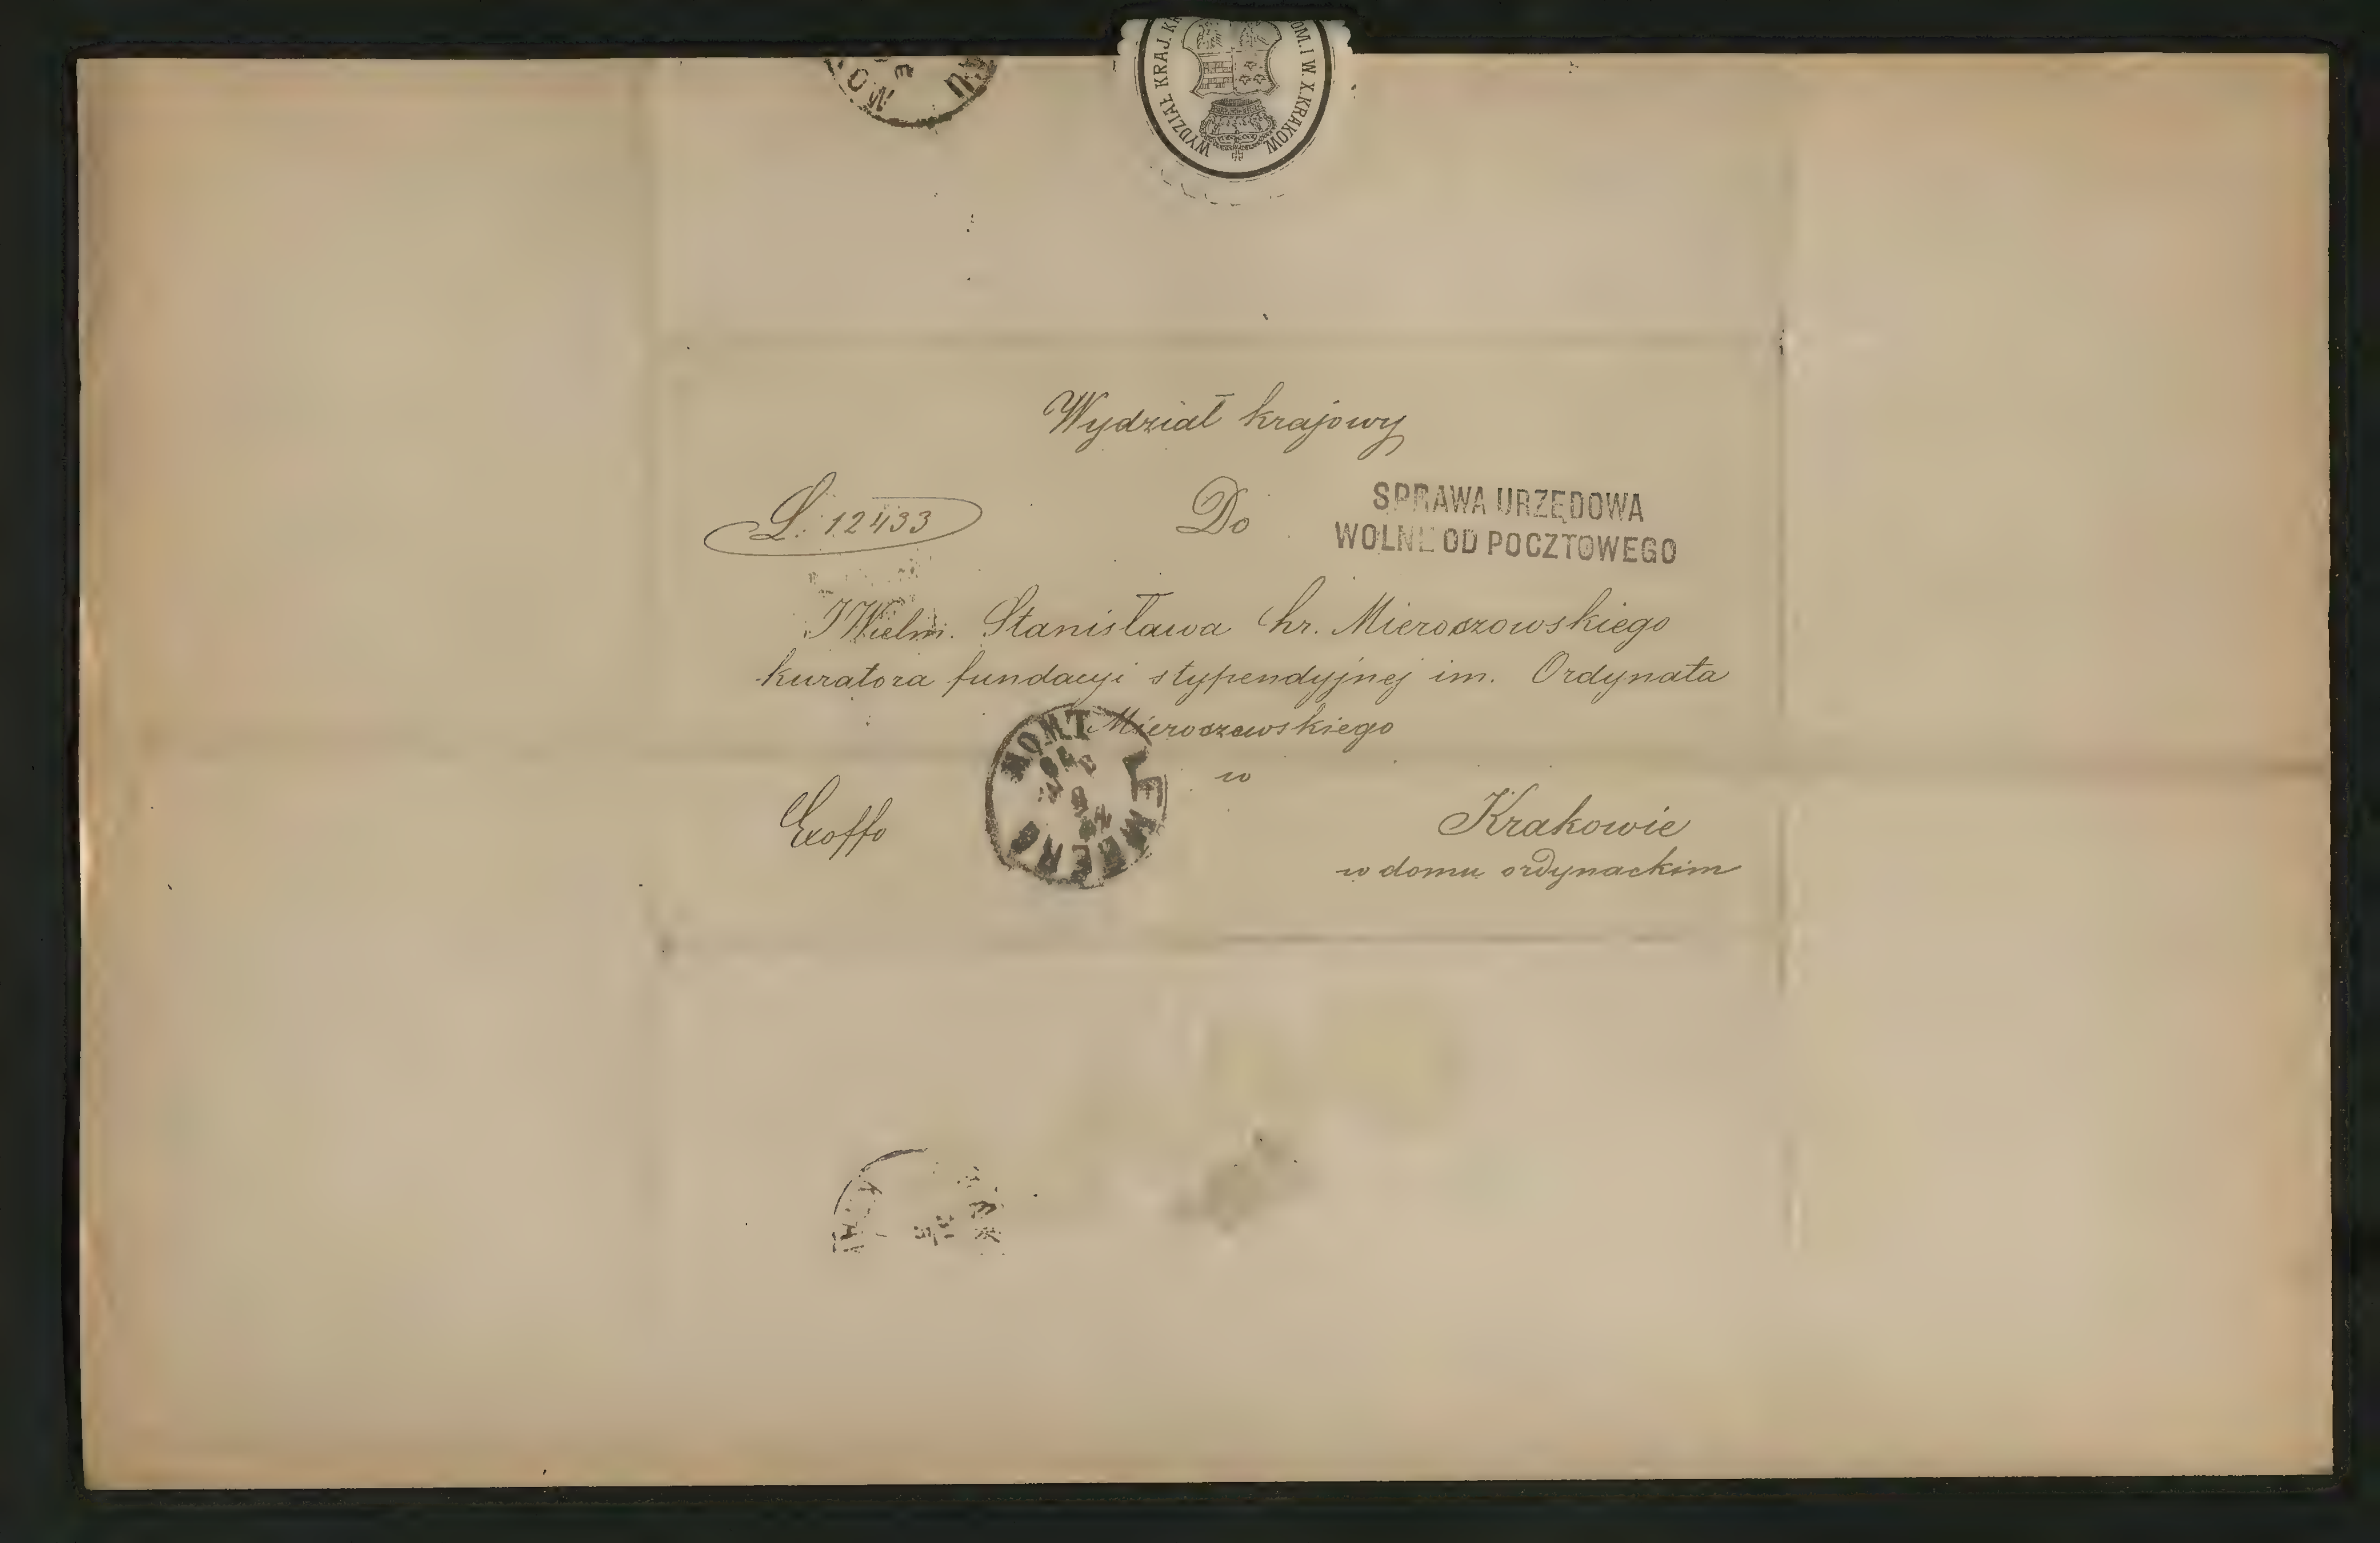 WYDZIAŁ KRAJ. OM. I W. X. KRAKOW.
Wydział krajowy
L. 12433
Do
SPRAWA URZĘDOWA
WOLNE OD POCZTOWEGO
JWielm. Stanisława hr. Mieroszowskiego
kuratora fundacyi stypendyjnej im. Ordynata
Mieroszewskiego
w
LEMBERG
Exoffo
Krakowie
w domu ordynackim